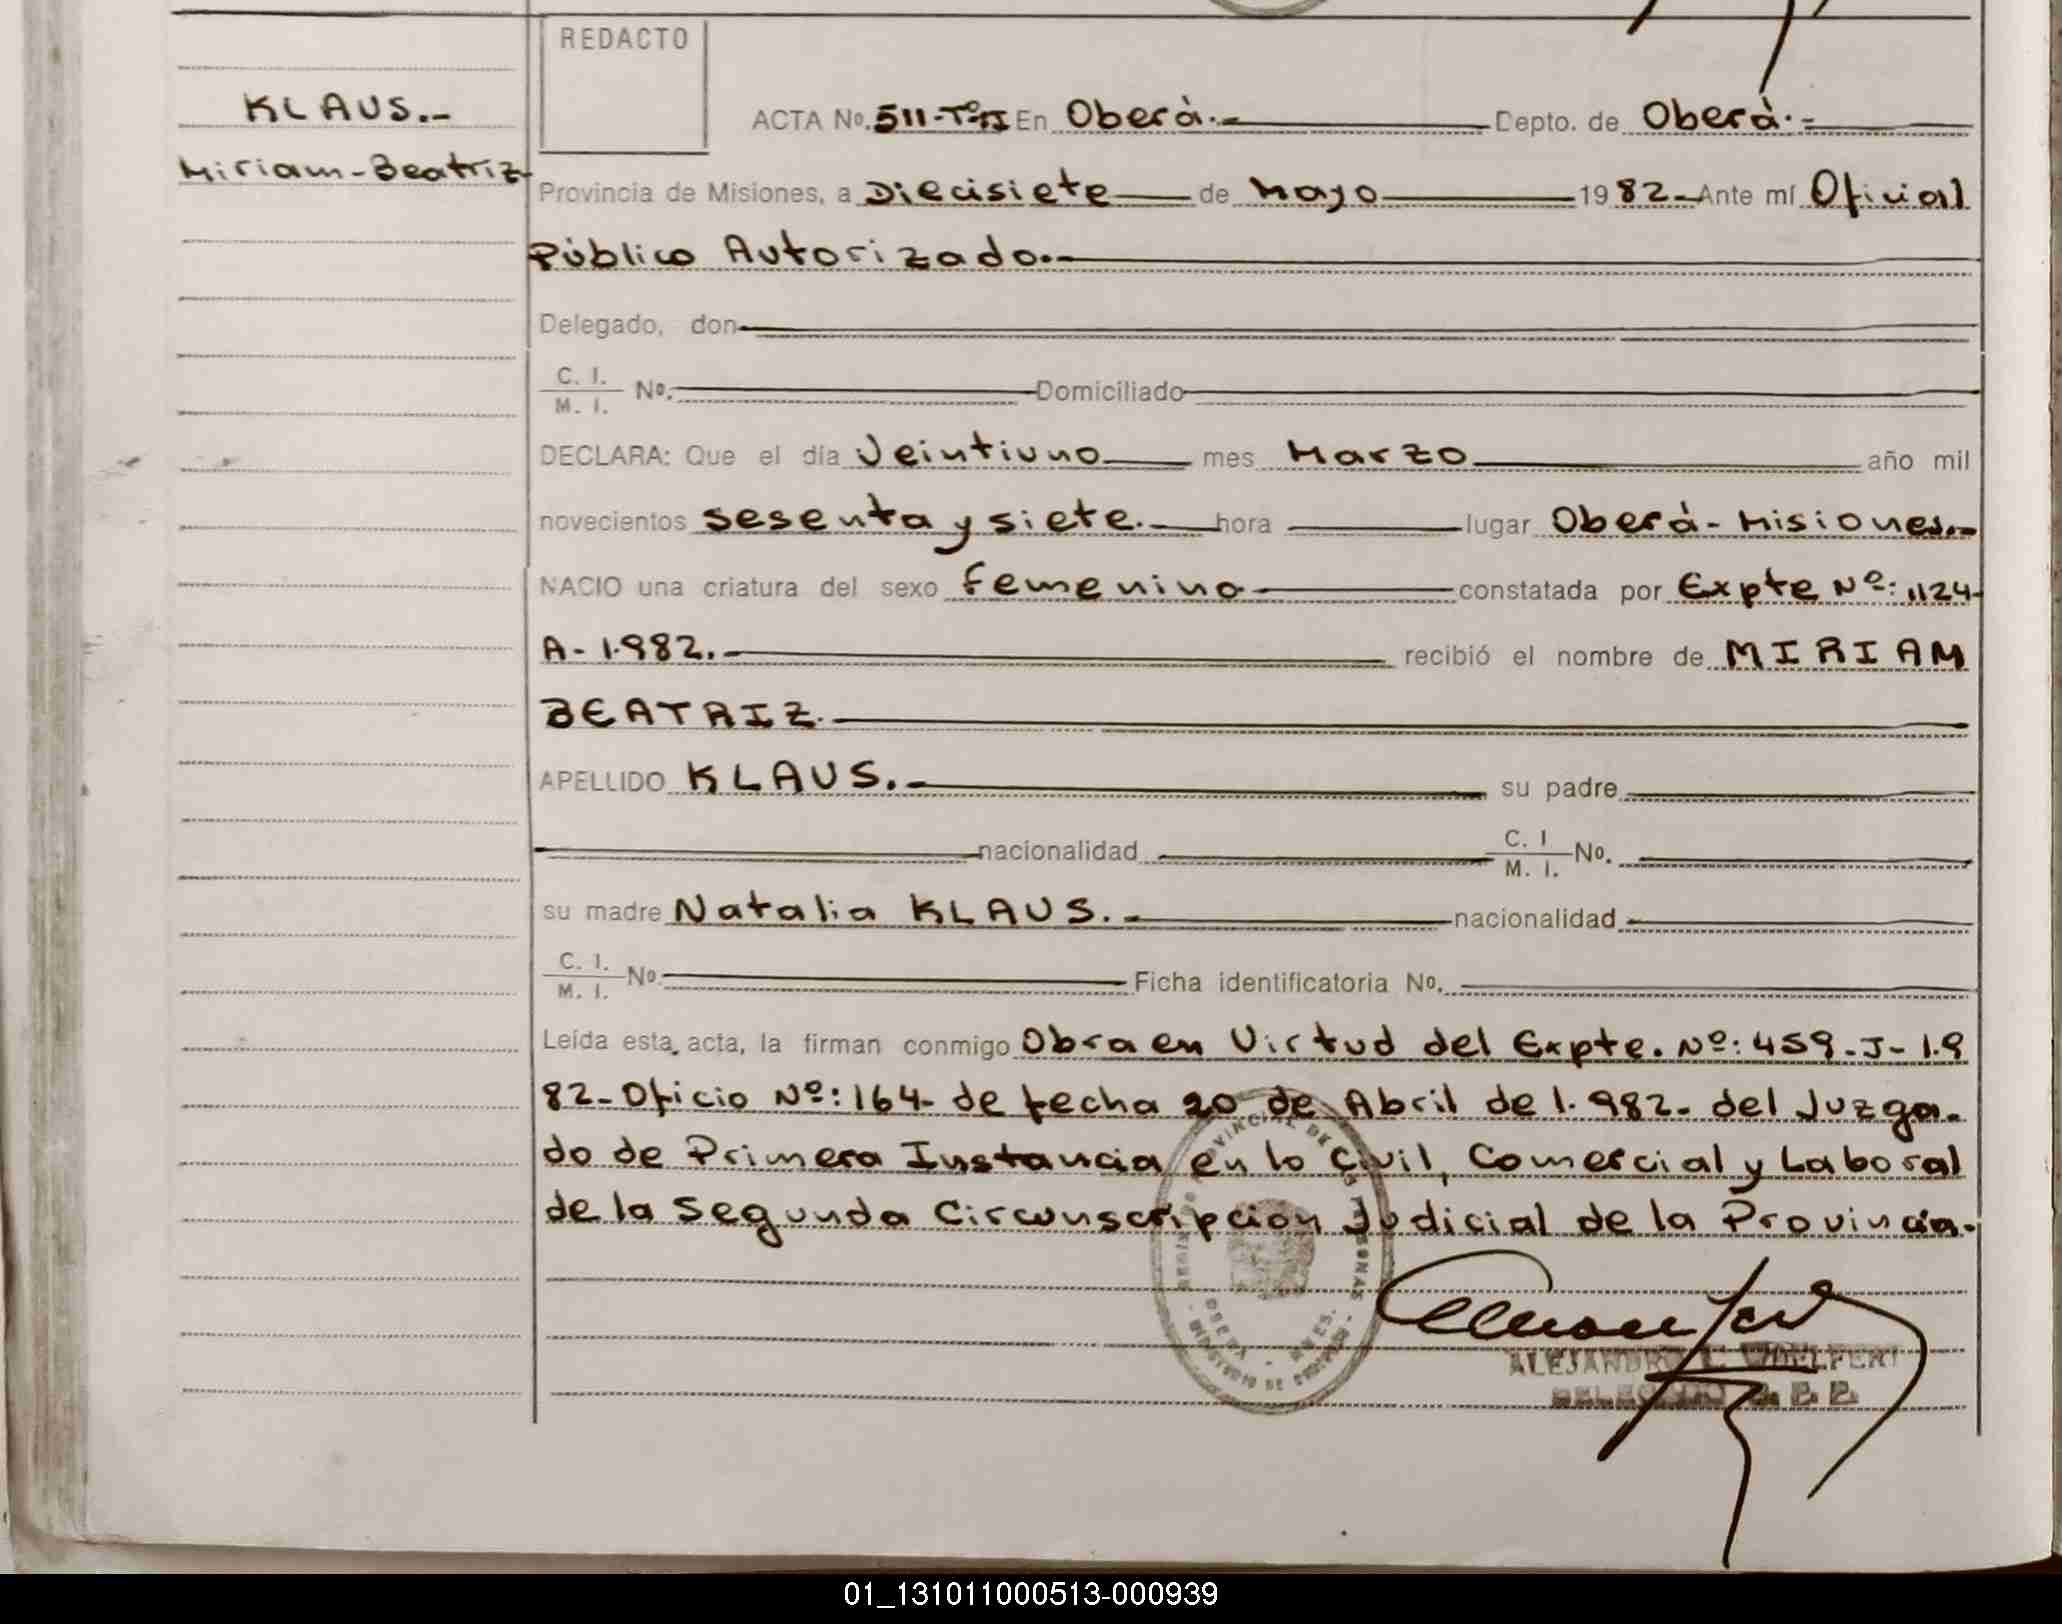 REDACTO
KLAUS.-
ACTA No. 511-TºII En Oberà.- Depto. de Oberà.-
Miriam-Beatriz
Provincia de Misiones, a Diecisiete de Mayo 1982.- Ante mí Oficial
Pùblico Autorizado.-
Delegado, don
C. I.
M. I. No. Domiciliado
DECLARA: Que el día Veintiuno mes Marzo año mil
novecientos sesenta y siete.- hora lugar Oberà-Misiones.-
NACIO una criatura del sexo femenino constatada por Expte Nº: 1124-
A-1.982.- recibió el nombre de MIRIAM
BEATRIZ.-
APELLIDO KLAUS.- su padre
nacionalidad C. I
M. I. No.
su madre Natalia KLAUS.- nacionalidad
C. I.
M. I. No. Ficha identificatoria No.
Leída esta acta, la firman conmigo Obra en Virtud del Expte. Nº: 459-J-1.9
82-Oficio Nº: 164- de fecha 20 de Abril de 1.982- del Juzga-
do de Primera Instancia en lo Civil, Comercial y Laboral
de la Segunda Circunscripcion Judicial de la Provincia.
PROVINCIAL DE LAS PERSONAS
OBERA - MNES.
MINISTERIO DE GOBIERNO
ALEJANDRO
DELEGADO
01_131011000513-000939